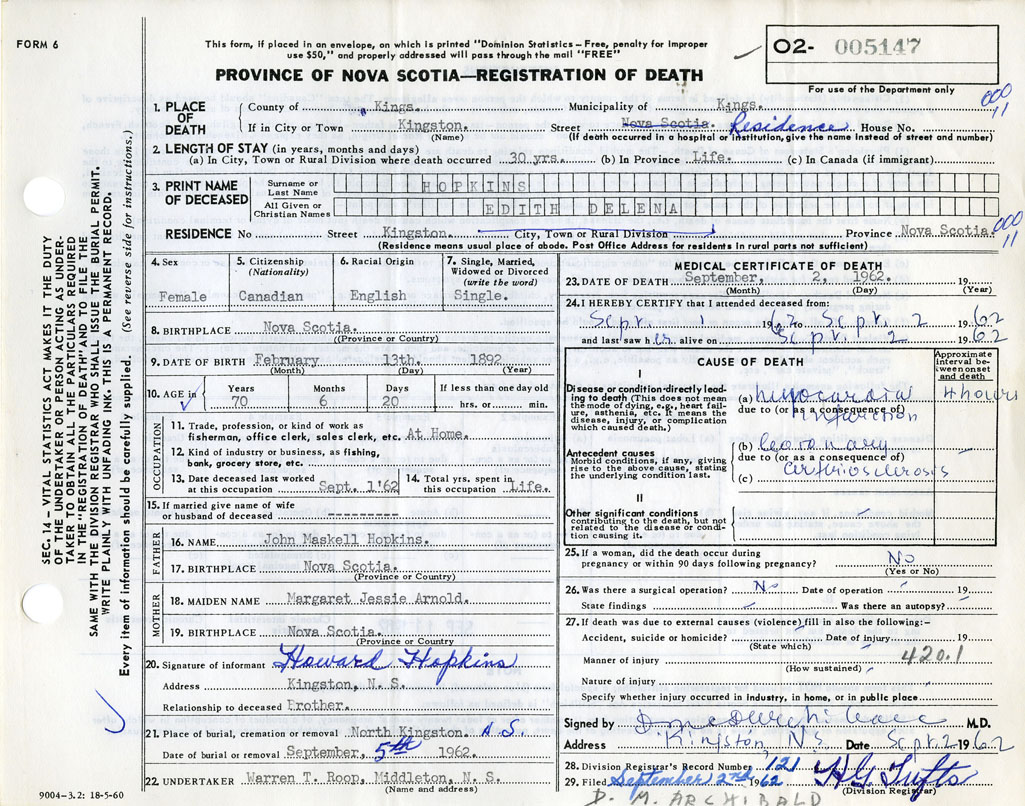 FORM 6
This form, if placed in an envelope, on which is printed "Dominion Statistics – Free, penalty for improper
use $50," and properly addressed will pass through the mail "FREE"
O2- 005147
PROVINCE OF NOVA SCOTIA—REGISTRATION OF DEATH
For use of the Department only
1. PLACE OF DEATH
County of Kings. Municipality of Kings.
000
11
(Name)
If in City or Town Kingston. Street Nova Scotia. Residence House No.
(If death occurred in a hospital or institution, give its name instead of street and number)
2. LENGTH OF STAY (in years, months and days)
(a) In City, Town or Rural Division where death occurred 30 yrs. (b) In Province Life. (c) In Canada (if immigrant)
3. PRINT NAME OF DECEASED
Surname or Last Name HOPKINS
All Given or Christian Names EDITH DELENA
RESIDENCE No Street Kingston. City, Town or Rural Division Province Nova Scotia.
000
11
(Residence means usual place of abode. Post Office Address for residents in rural parts not sufficient)
4. Sex
Female
5. Citizenship
(Nationality)
Canadian
6. Racial Origin
English
7. Single, Married,
Widowed or Divorced
(write the word)
Single.
8. BIRTHPLACE Nova Scotia.
(Province or Country)
9. DATE OF BIRTH February 13th. 1892
(Month) (Day) (Year)
10. AGE in
Years Months Days If less than one day old
70 6 20 hrs. or min.
OCCUPATION
11. Trade, profession, or kind of work as
fisherman, office clerk, sales clerk, etc. At Home.
12. Kind of industry or business, as fishing,
bank, grocery store, etc.
13. Date deceased last worked
at this occupation Sept. 1'62
14. Total yrs. spent in
this occupation Life.
15. If married give name of wife
or husband of deceased ---------
FATHER
16. NAME John Maskell Hopkins.
17. BIRTHPLACE Nova Scotia.
(Province or Country)
MOTHER
18. MAIDEN NAME Margaret Jessie Arnold.
19. BIRTHPLACE Nova Scotia.
(Province or Country)
20. Signature of informant Howard Hopkins
Address Kingston, N. S.
Relationship to deceased Brother.
21. Place of burial, cremation or removal North Kingston. N.S.
Date of burial or removal September, 5th 1962.
22. UNDERTAKER Warren T. Roop, Middleton, N. S.
(Name and address)
MEDICAL CERTIFICATE OF DEATH
23. DATE OF DEATH September, 2, 1962. 19
(Month) (Day) (Year)
24. I HEREBY CERTIFY that I attended deceased from:
Sept. 1 1962 to Sept. 2 1962
and last saw her alive on Sept. 2 1962
CAUSE OF DEATH
Approximate
interval be-
tween onset
and death
I
Disease or condition directly lead-
ing to death (This does not mean
the mode of dying, e.g., heart fail-
ure, asthenia, etc. It means the
disease, injury, or complication
which caused death.)
(a) myocardial 4 hours
due to (or as a consequence of)
infarction
Antecedent causes
Morbid conditions, if any, giving
rise to the above cause, stating
the underlying condition last.
(b) Coronary
due to (or as a consequence of)
arteriosclerosis
(c)
II
Other significant conditions
contributing to the death, but not
related to the disease or condi-
tion causing it.
25. If a woman, did the death occur during
pregnancy or within 90 days following pregnancy? No
(Yes or No)
26. Was there a surgical operation? No Date of operation 19
State findings Was there an autopsy?
27. If death was due to external causes (violence) fill in also the following:-
Accident, suicide or homicide? Date of injury 19
(State which)
Manner of injury 420.1
(How sustained)
Nature of injury
Specify whether injury occurred in Industry, in home, or in public place
Signed by M.D.
Address Kingston, N.S. Date Sept. 2 1962
28. Division Registrar's Record Number 121
29. Filed September 2nd 1962 HG Tufts
(Division Registrar)
D. M. ARCHIBALD
SEC. 14 – VITAL STATISTICS ACT MAKES IT THE DUTY
OF THE UNDERTAKER OR PERSON ACTING AS UNDER-
TAKER TO OBTAIN ALL THE PARTICULARS REQUIRED
IN THE "REGISTRATION OF DEATH" AND TO FILE THE
SAME WITH THE DIVISION REGISTRAR WHO SHALL ISSUE THE BURIAL PERMIT.
WRITE PLAINLY WITH UNFADING INK. THIS IS A PERMANENT RECORD.
Every item of information should be carefully supplied. (See reverse side for instructions.)
9004–3.2: 18-5-60